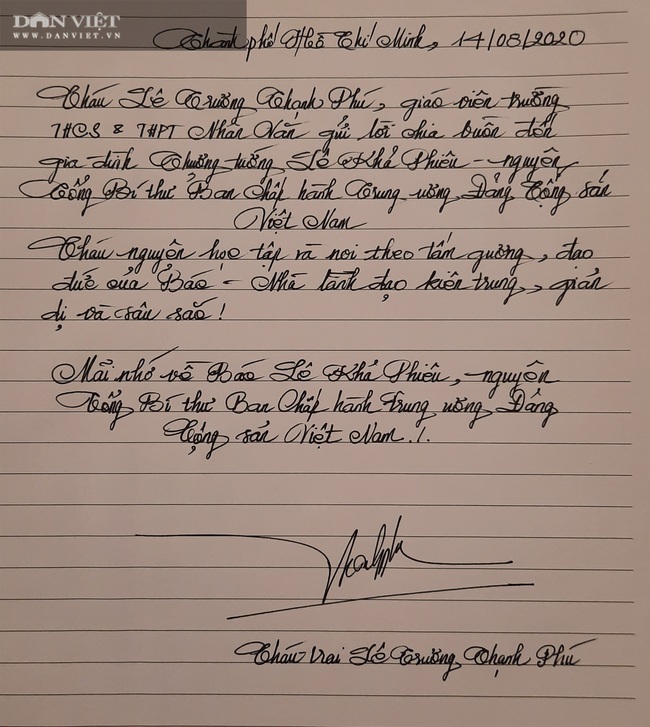 DÂN VIỆT
WWW.DANVIET.VN
Thành phố Hồ Chí Minh, 14/08/2020
Cháu Lê Trương Thạnh Phú, giáo viên trường
THCS & THPT Nhân Văn gửi lời chia buồn đến
gia đình Thượng tướng Lê Khả Phiêu - nguyên
Tổng Bí thư Ban Chấp hành Trung ương Đảng Cộng sản
Việt Nam
Cháu nguyện học tập và noi theo tấm gương, đạo
đức của Bác - Nhà lãnh đạo kiên trung, giản
dị và sâu sắc!
Mãi nhớ về Bác Lê Khả Phiêu, nguyên
Tổng Bí thư Ban Chấp hành Trung ương Đảng
Cộng sản Việt Nam./.
Cháu trai Lê Trương Thạnh Phú